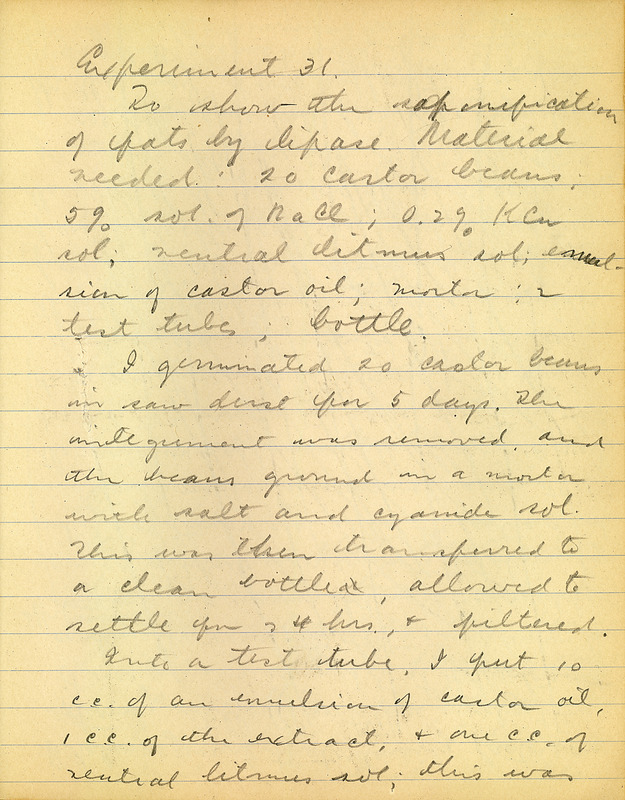 Experiment 31.
To show the saponification
of fats by lipase. Material
needed: 20 castor beans;
5% sol. of NaCl; 0.2% KCn
sol; neutral litmus sol; emul-
sion of castor oil; mortor; 2
test tubes; bottle.
I germinated 20 castor beans
in saw dust for 5 days. The
integument was removed and
the beans ground in a mortor
with salt and cyanide sol.
This was then transferred to
a clean bottle, allowed to
settle for 24 hrs., & filtered.
Into a test tube, I put 10
c.c. of an emulsion of castor oil,
1 c.c. of the extract, & one c.c. of
neutral litmus sol; this was